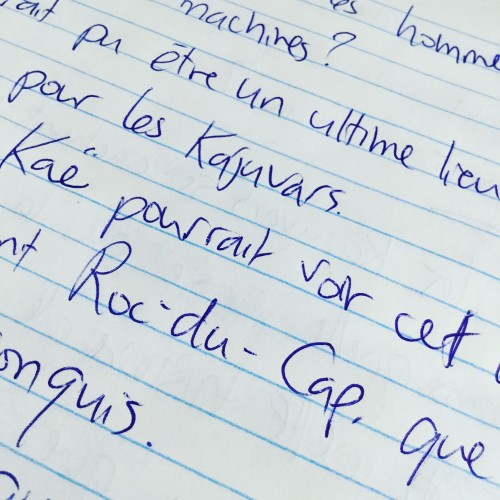 les hommes
machines ?
pu être un ultime lieu
pour les Kajuvars.
Kaë pourrait voir cet
Roc-du-Cap, que
onquis.